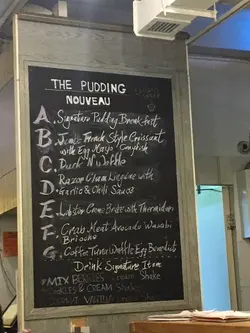 THE PUDDING
NOUVEAU
A. Signature Pudding Breakfast
B. Jumbo French Style Croissant
with Egg Mayo Crayfish
C. Duck N Waffle
D. Razor Clam Linguine with
Garlic & Chili Sauce
E. Lobster Creme Brulee with Thermidor
F. Crab Meat Avocado Wasabi
Brioche
G. Coffee Tuna Waffle Egg Benedict
Drink Signature Item
MIX BERRIES Cream Shake
& CREAM Shake